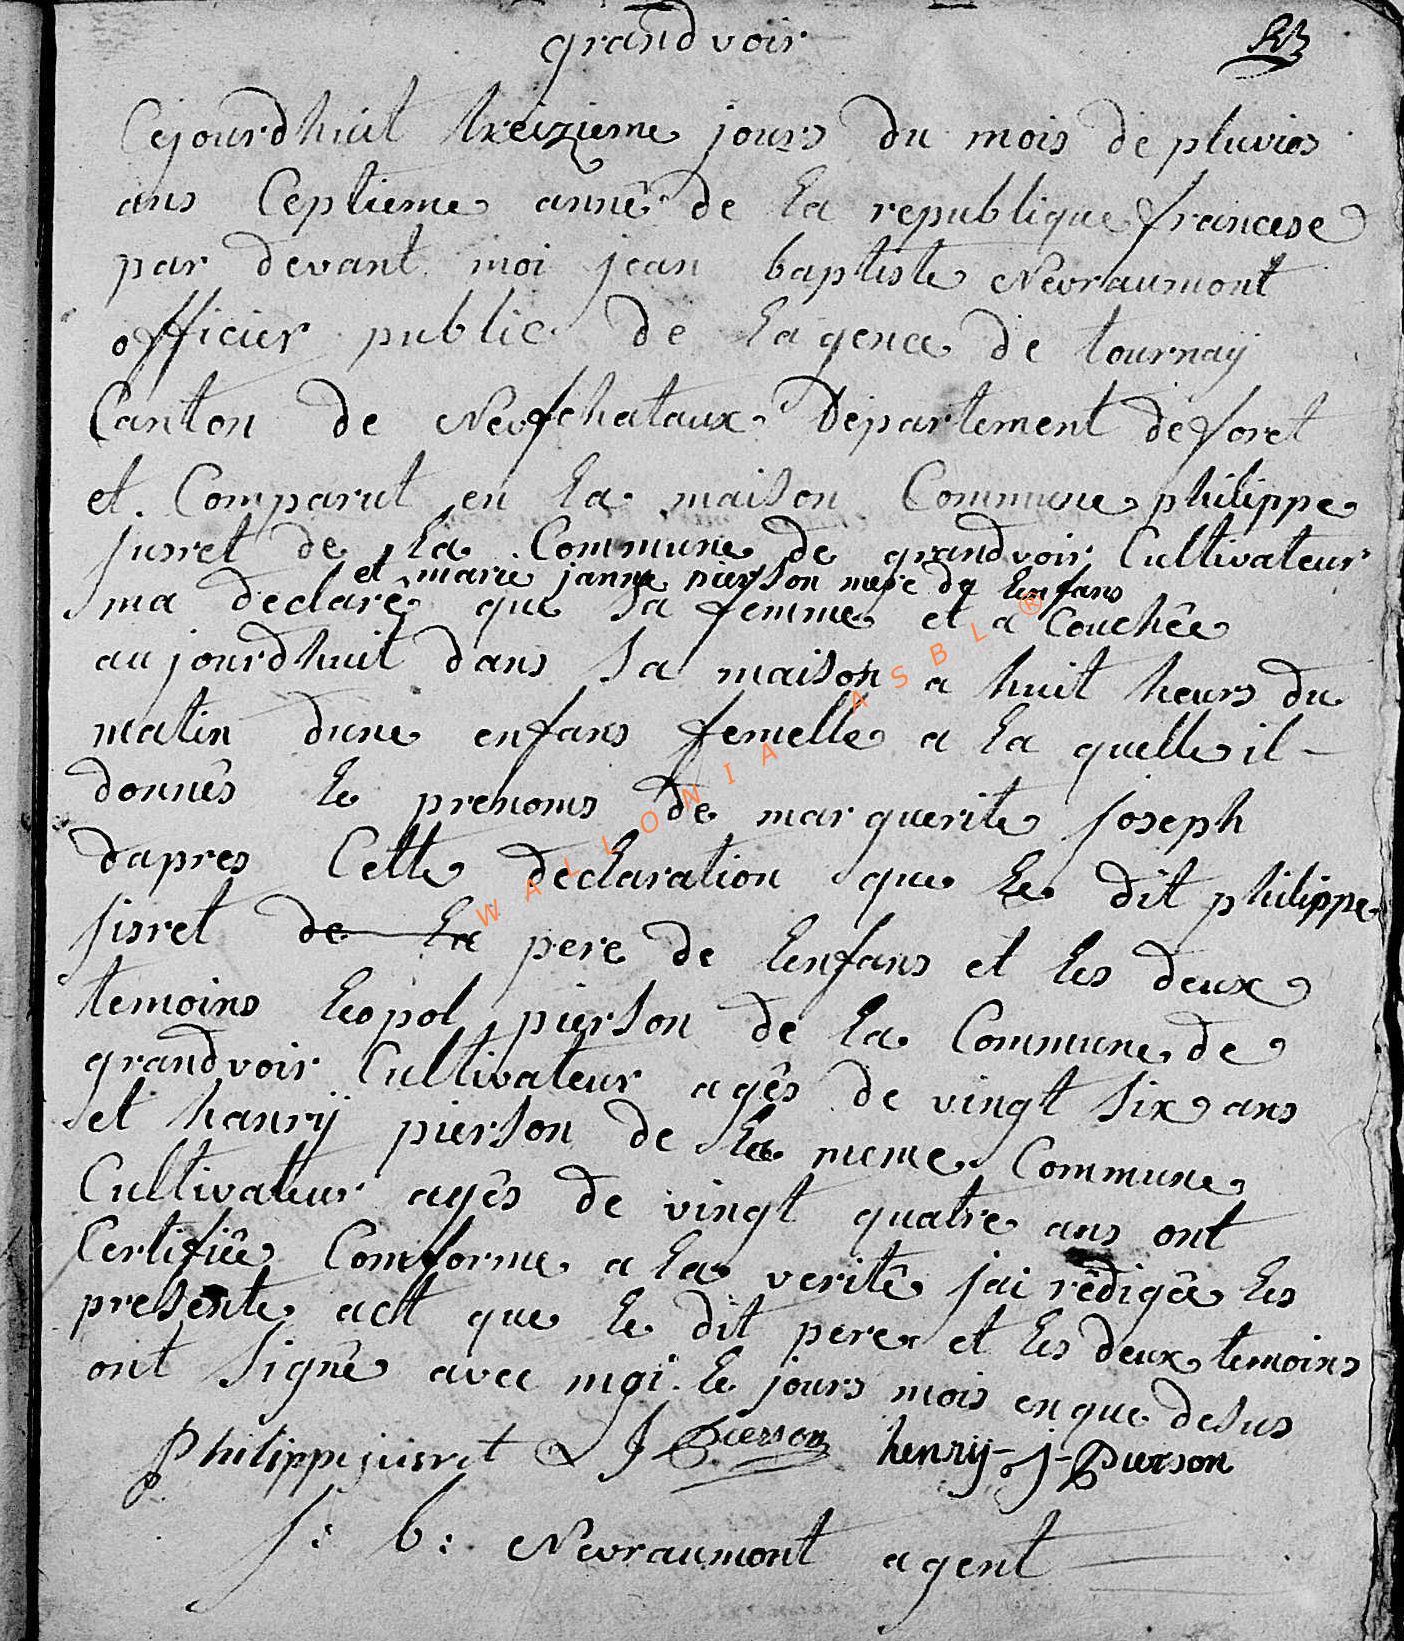 grandvoir
Cejourdhuit treizieme jours du mois de pluvios
ans Ceptieme année de la republique francese
par devant moi jean baptiste Nevraumont
officier public de lagence de tournaÿ
Canton de Neufchataux Departement de foret
et Comparut en la maison Commune philippe
jusret de la Commune de grandvoir Cultivateur
et marie janne pierson mere de lenfans
ma declaré que sa femme et a Couchêe
aujourdhuit dans sa maison a huit heurs du
matin dune enfans femelle a la quelle il
donnês le prenoms de marguerite joseph
dapres Cette declaration que le dit philippe
jisret de la pere de lenfans et les deux
temoins leopol pierson de la Commune de
grandvoir Cultivateur agês de vingt six ans
et hanrÿ pierson de la meme Commune
Cultivateur agês de vingt quatre ans ont
Certifiêe Comforme a la veritê jai rêdigêe les
presente act que le dit pere et les deux temoins
ont signê avec moi le jours mois enque desus
Philippe jusret L J Pierson henrÿ-j-Pierson
j: b: Nevraumont agent
WALLONIA ASBL ®